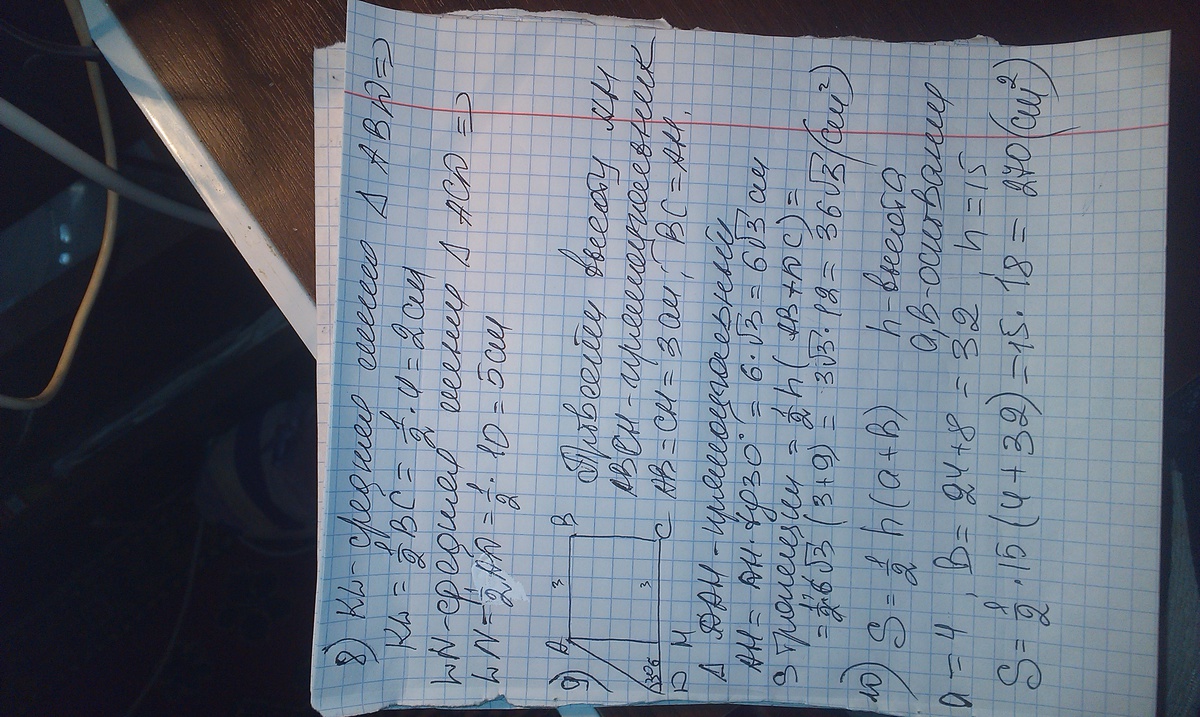 8) KL-средняя линия Δ ABD=>
KL = 1/2 BC = 1/2 · 4 = 2 см
LN-средняя линия Δ ACD =>
LN = 1/2 AD = 1/2 · 10 = 5 см
9) A 3 B
3
30° 6
D H C
Провести высоту AH
ABCH-прямоугольник
AB = CH = 3 см, BC = AH.
Δ DAH-прямоугольный
AH = DH · tg30° = 6 · √3 = 6√3 см
S трапеции = 1/2 h ( AB + DC ) =
= 1/2 · 6√3 (3+9) = 3√3 · 12 = 36√3 (см²)
10) S = 1/2 h (a + B) h-высота
a,B-основания
a = 4 , B = 24 + 8 = 32 h = 15
S = 1/2 · 15 (4 + 32) = 15 · 18 = 270 (см²)